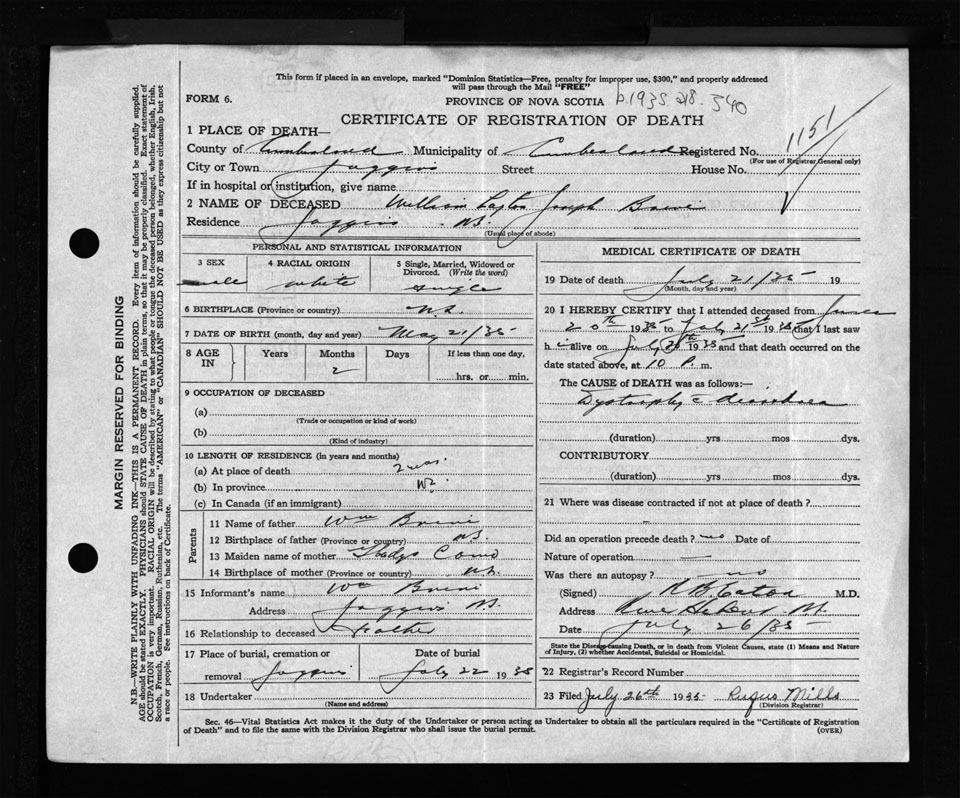 This form if placed in an envelope, marked "Dominion Statistics—Free, penalty for improper use, $300," and properly addressed
will pass through the Mail "FREE"
FORM 6.
PROVINCE OF NOVA SCOTIA b.1935. 218. 540
CERTIFICATE OF REGISTRATION OF DEATH
1151
1 PLACE OF DEATH—
County of Cumberland Municipality of Cumberland Registered No.
(For use of Registrar General only)
City or Town Joggins Street House No.
If in hospital or institution, give name
2 NAME OF DECEASED William Joseph
Residence Joggins N.S.
(Usual place of abode)
PERSONAL AND STATISTICAL INFORMATION
3 SEX 4 RACIAL ORIGIN 5 Single, Married, Widowed or
Divorced. (Write the word)
Male White Single
6 BIRTHPLACE (Province or country) N.S.
7 DATE OF BIRTH (month, day and year) May 21/35
8 AGE IN Years Months Days If less than one day,
2
hrs. or min.
9 OCCUPATION OF DECEASED
(a)
(Trade or occupation or kind of work)
(b)
(Kind of industry)
10 LENGTH OF RESIDENCE (in years and months)
(a) At place of death 2 mos.
(b) In province
(c) In Canada (if an immigrant)
Parents
11 Name of father Wm
12 Birthplace of father (Province or country) N.S.
13 Maiden name of mother Gladys
14 Birthplace of mother (Province or country) N.S.
15 Informant's name Wm
Address Joggins N.S.
16 Relationship to deceased Father
17 Place of burial, cremation or Date of burial
removal Joggins July 22 1935
18 Undertaker
(Name and address)
MEDICAL CERTIFICATE OF DEATH
19 Date of death July 21/35 19
(Month, day and year)
20 I HEREBY CERTIFY that I attended deceased from June
20th 1935 to July 21st 1935 that I last saw
h i alive on July 20th 1935 and that death occurred on the
date stated above, at 10 P. m.
The CAUSE of DEATH was as follows:—
Dystrophy c diarrhoea
(duration) yrs mos dys.
CONTRIBUTORY
(duration) yrs mos dys.
21 Where was disease contracted if not at place of death?
Did an operation precede death? no Date of
Nature of operation —
Was there an autopsy? no
(Signed) Eaton M.D.
Address River Hebert N.S.
Date July 26/35
State the Disease causing Death, or in death from Violent Causes, state (1) Means and Nature
of Injury, (2) whether Accidental, Suicidal or Homicidal.
22 Registrar's Record Number
23 Filed July 26th 1935 Rufus Mills
(Division Registrar)
Sec. 46—Vital Statistics Act makes it the duty of the Undertaker or person acting as Undertaker to obtain all the particulars required in the "Certificate of Registration
of Death" and to file the same with the Division Registrar who shall issue the burial permit.
(OVER)
MARGIN RESERVED FOR BINDING
N.B.—WRITE PLAINLY WITH UNFADING INK—THIS IS A PERMANENT RECORD. Every item of information should be carefully supplied.
AGE should be stated EXACTLY. PHYSICIANS should STATE CAUSE OF DEATH in plain terms, so that it may be properly classified. Exact statement of
OCCUPATION is very important. RACIAL ORIGIN will be described by stating to what people or tongue the deceased person belonged, whether English, Irish,
Scotch, French, German, Russian, Ruthenian, etc. The terms "AMERICAN" or "CANADIAN" SHOULD NOT BE USED as they express citizenship but not
a race or people. See instructions on back of Certificate.